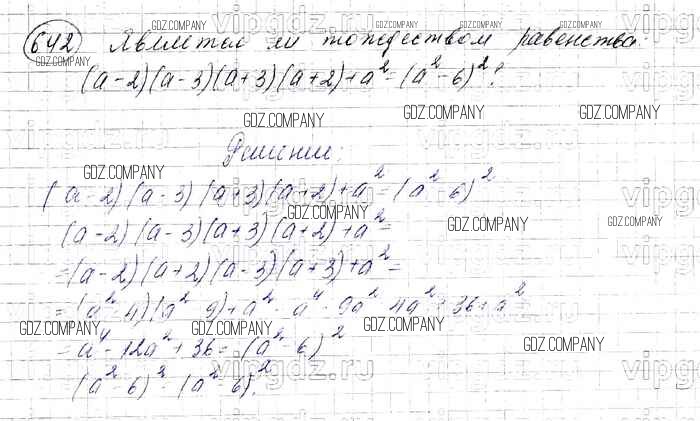 642 Является ли тождеством равенство
(a-2)(a-3)(a+3)(a+2)+a²=(a²-6)²?
Решение:
(a-2)(a-3)(a+3)(a+2)+a²=(a²-6)²
(a-2)(a-3)(a+3)(a+2)+a²=
=(a-2)(a+2)(a-3)(a+3)+a²=
=(a²-4)(a²-9)+a²=a⁴-9a²-4a²+36+a²
=a⁴-12a²+36=(a²-6)²
(a²-6)²=(a²-6)².
GDZ.COMPANY
vipgdz.ru